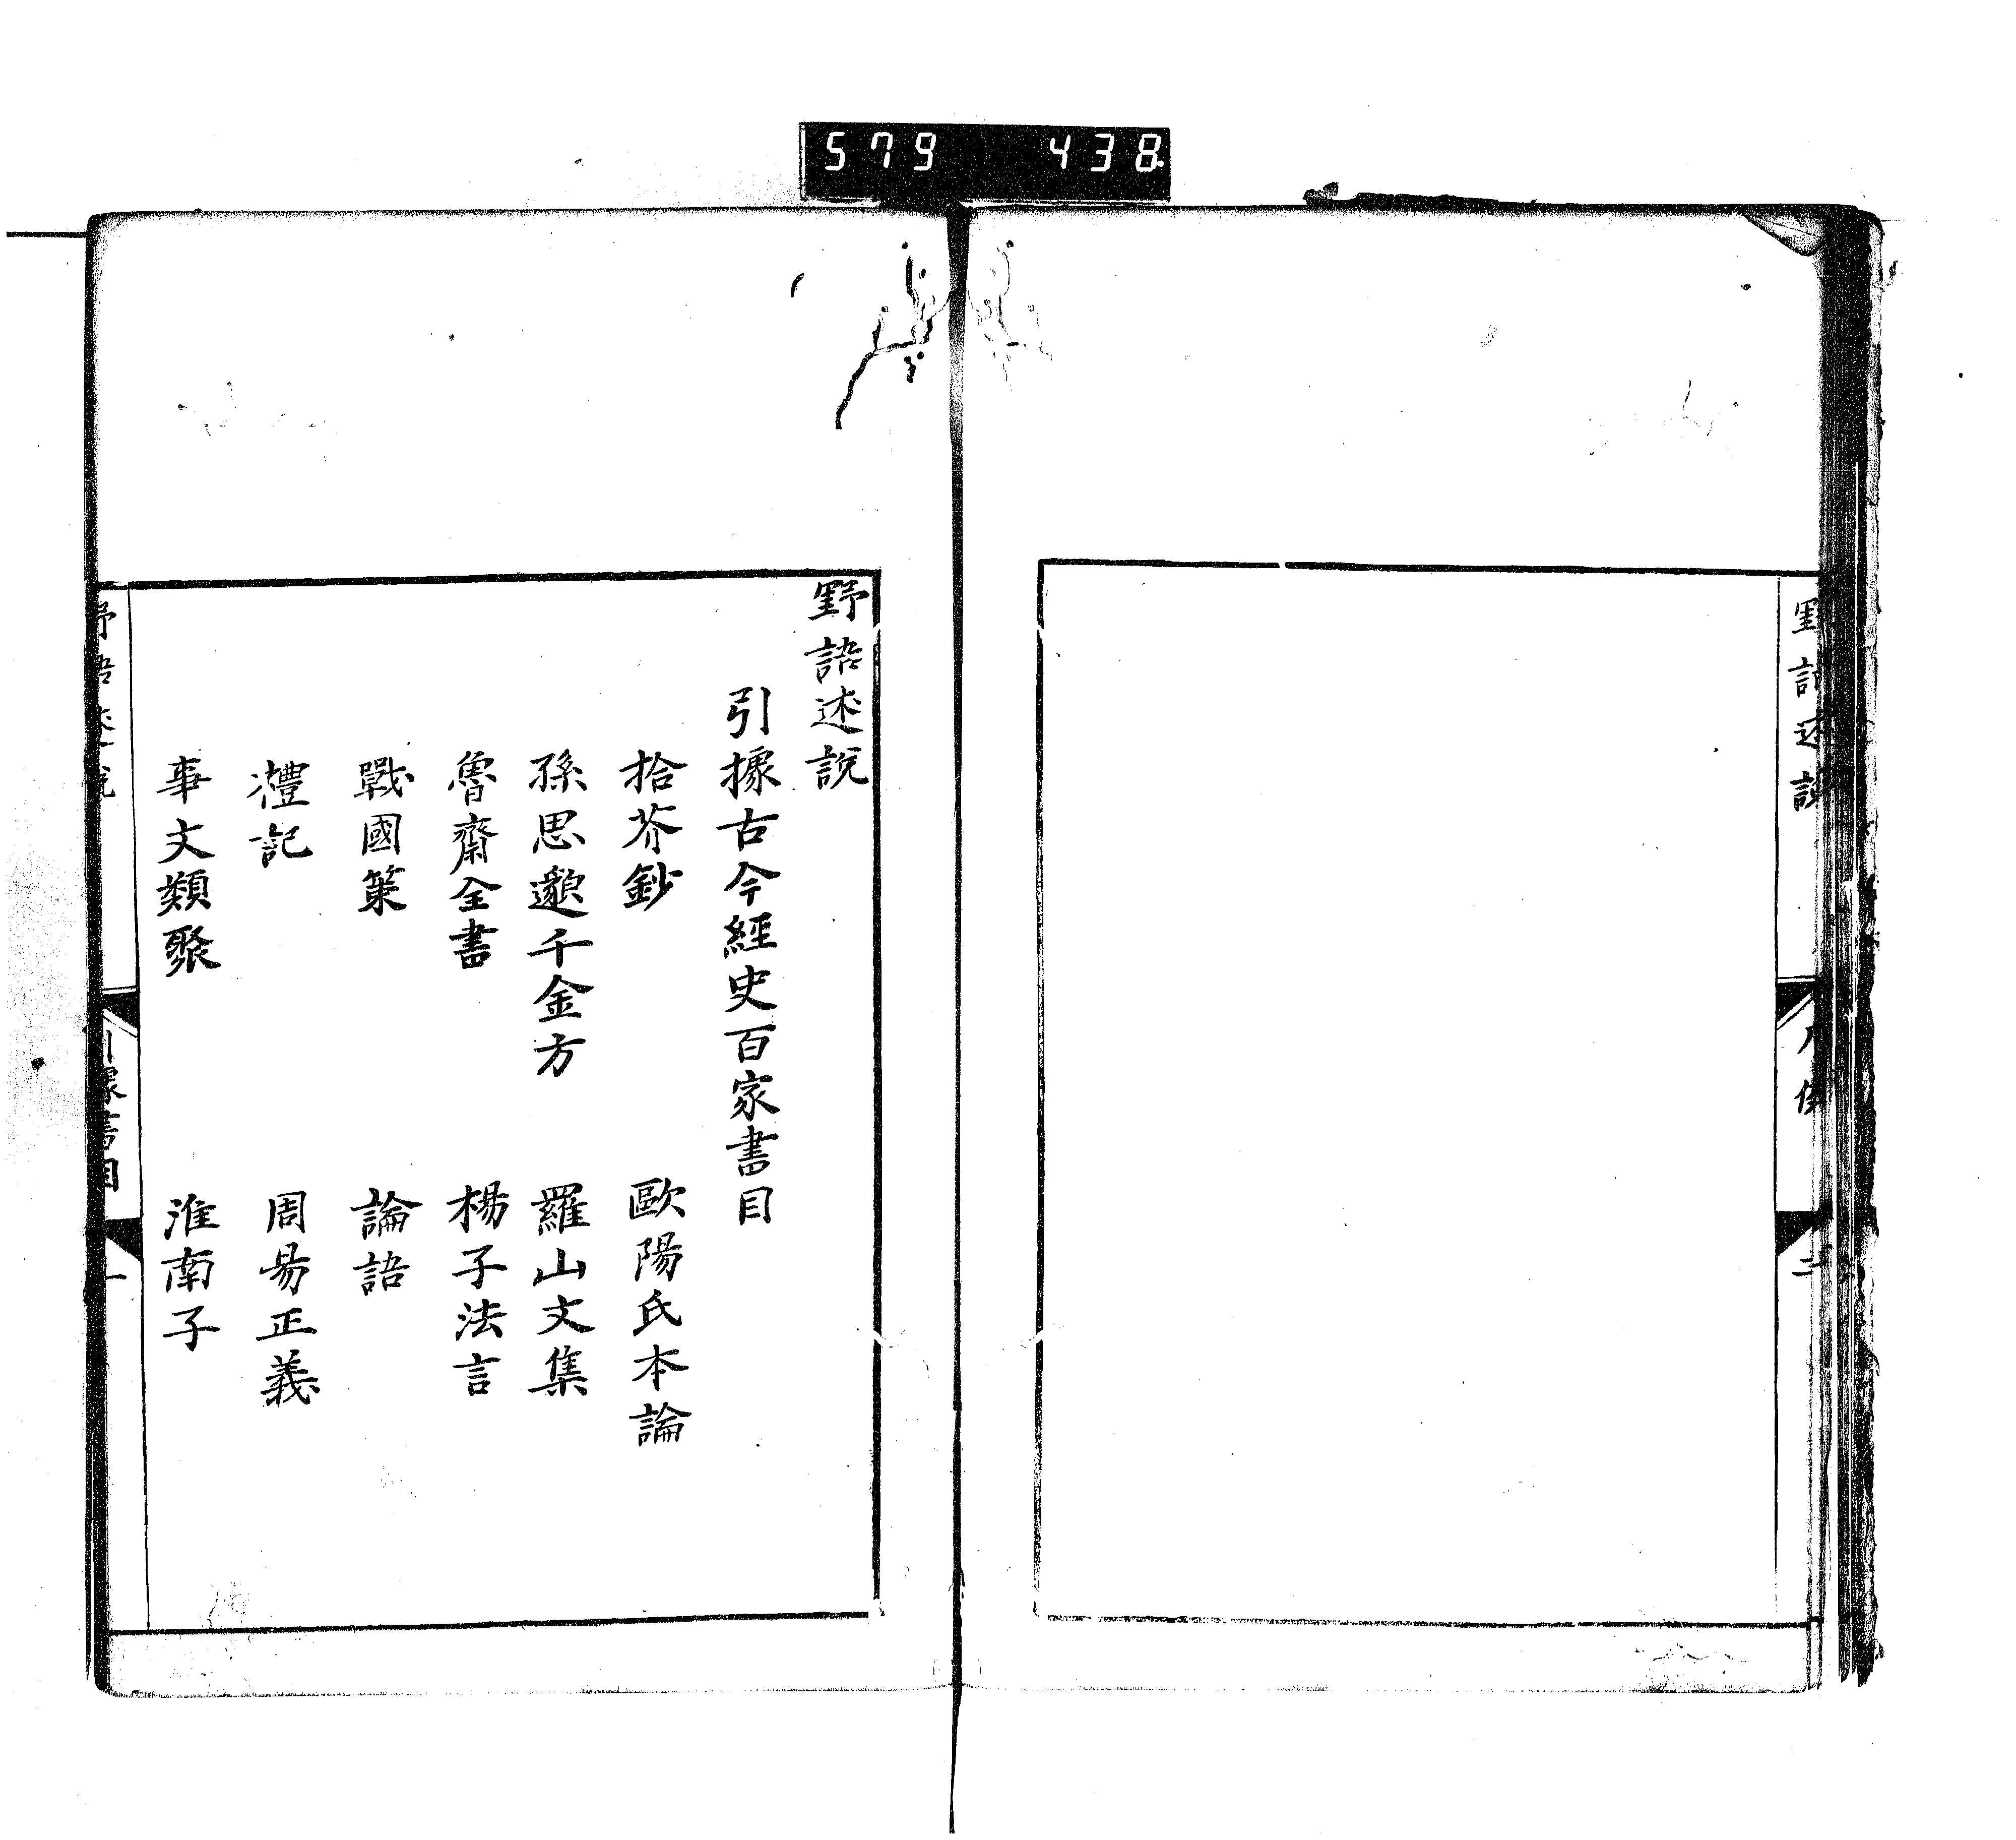 579 438
野語述說
凡例
二
野語述說
引據古今經史百家書目
拾芥鈔
歐陽氏本論
孫思邈千金方
羅山文集
魯齋全書
楊子法言
戰國策
論語
禮記
周易正義
事文類聚
淮南子
野語述說
引據書目
一